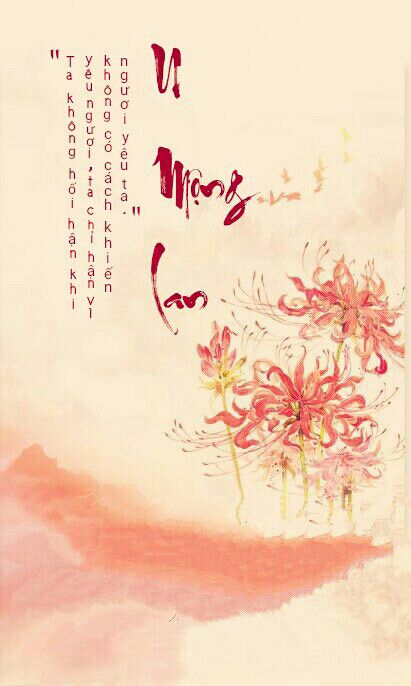 U
Mộng
Lan
" Ta không hối hận khi
yêu ngươi , ta chỉ hận vì
không có cách khiến
ngươi yêu ta . "